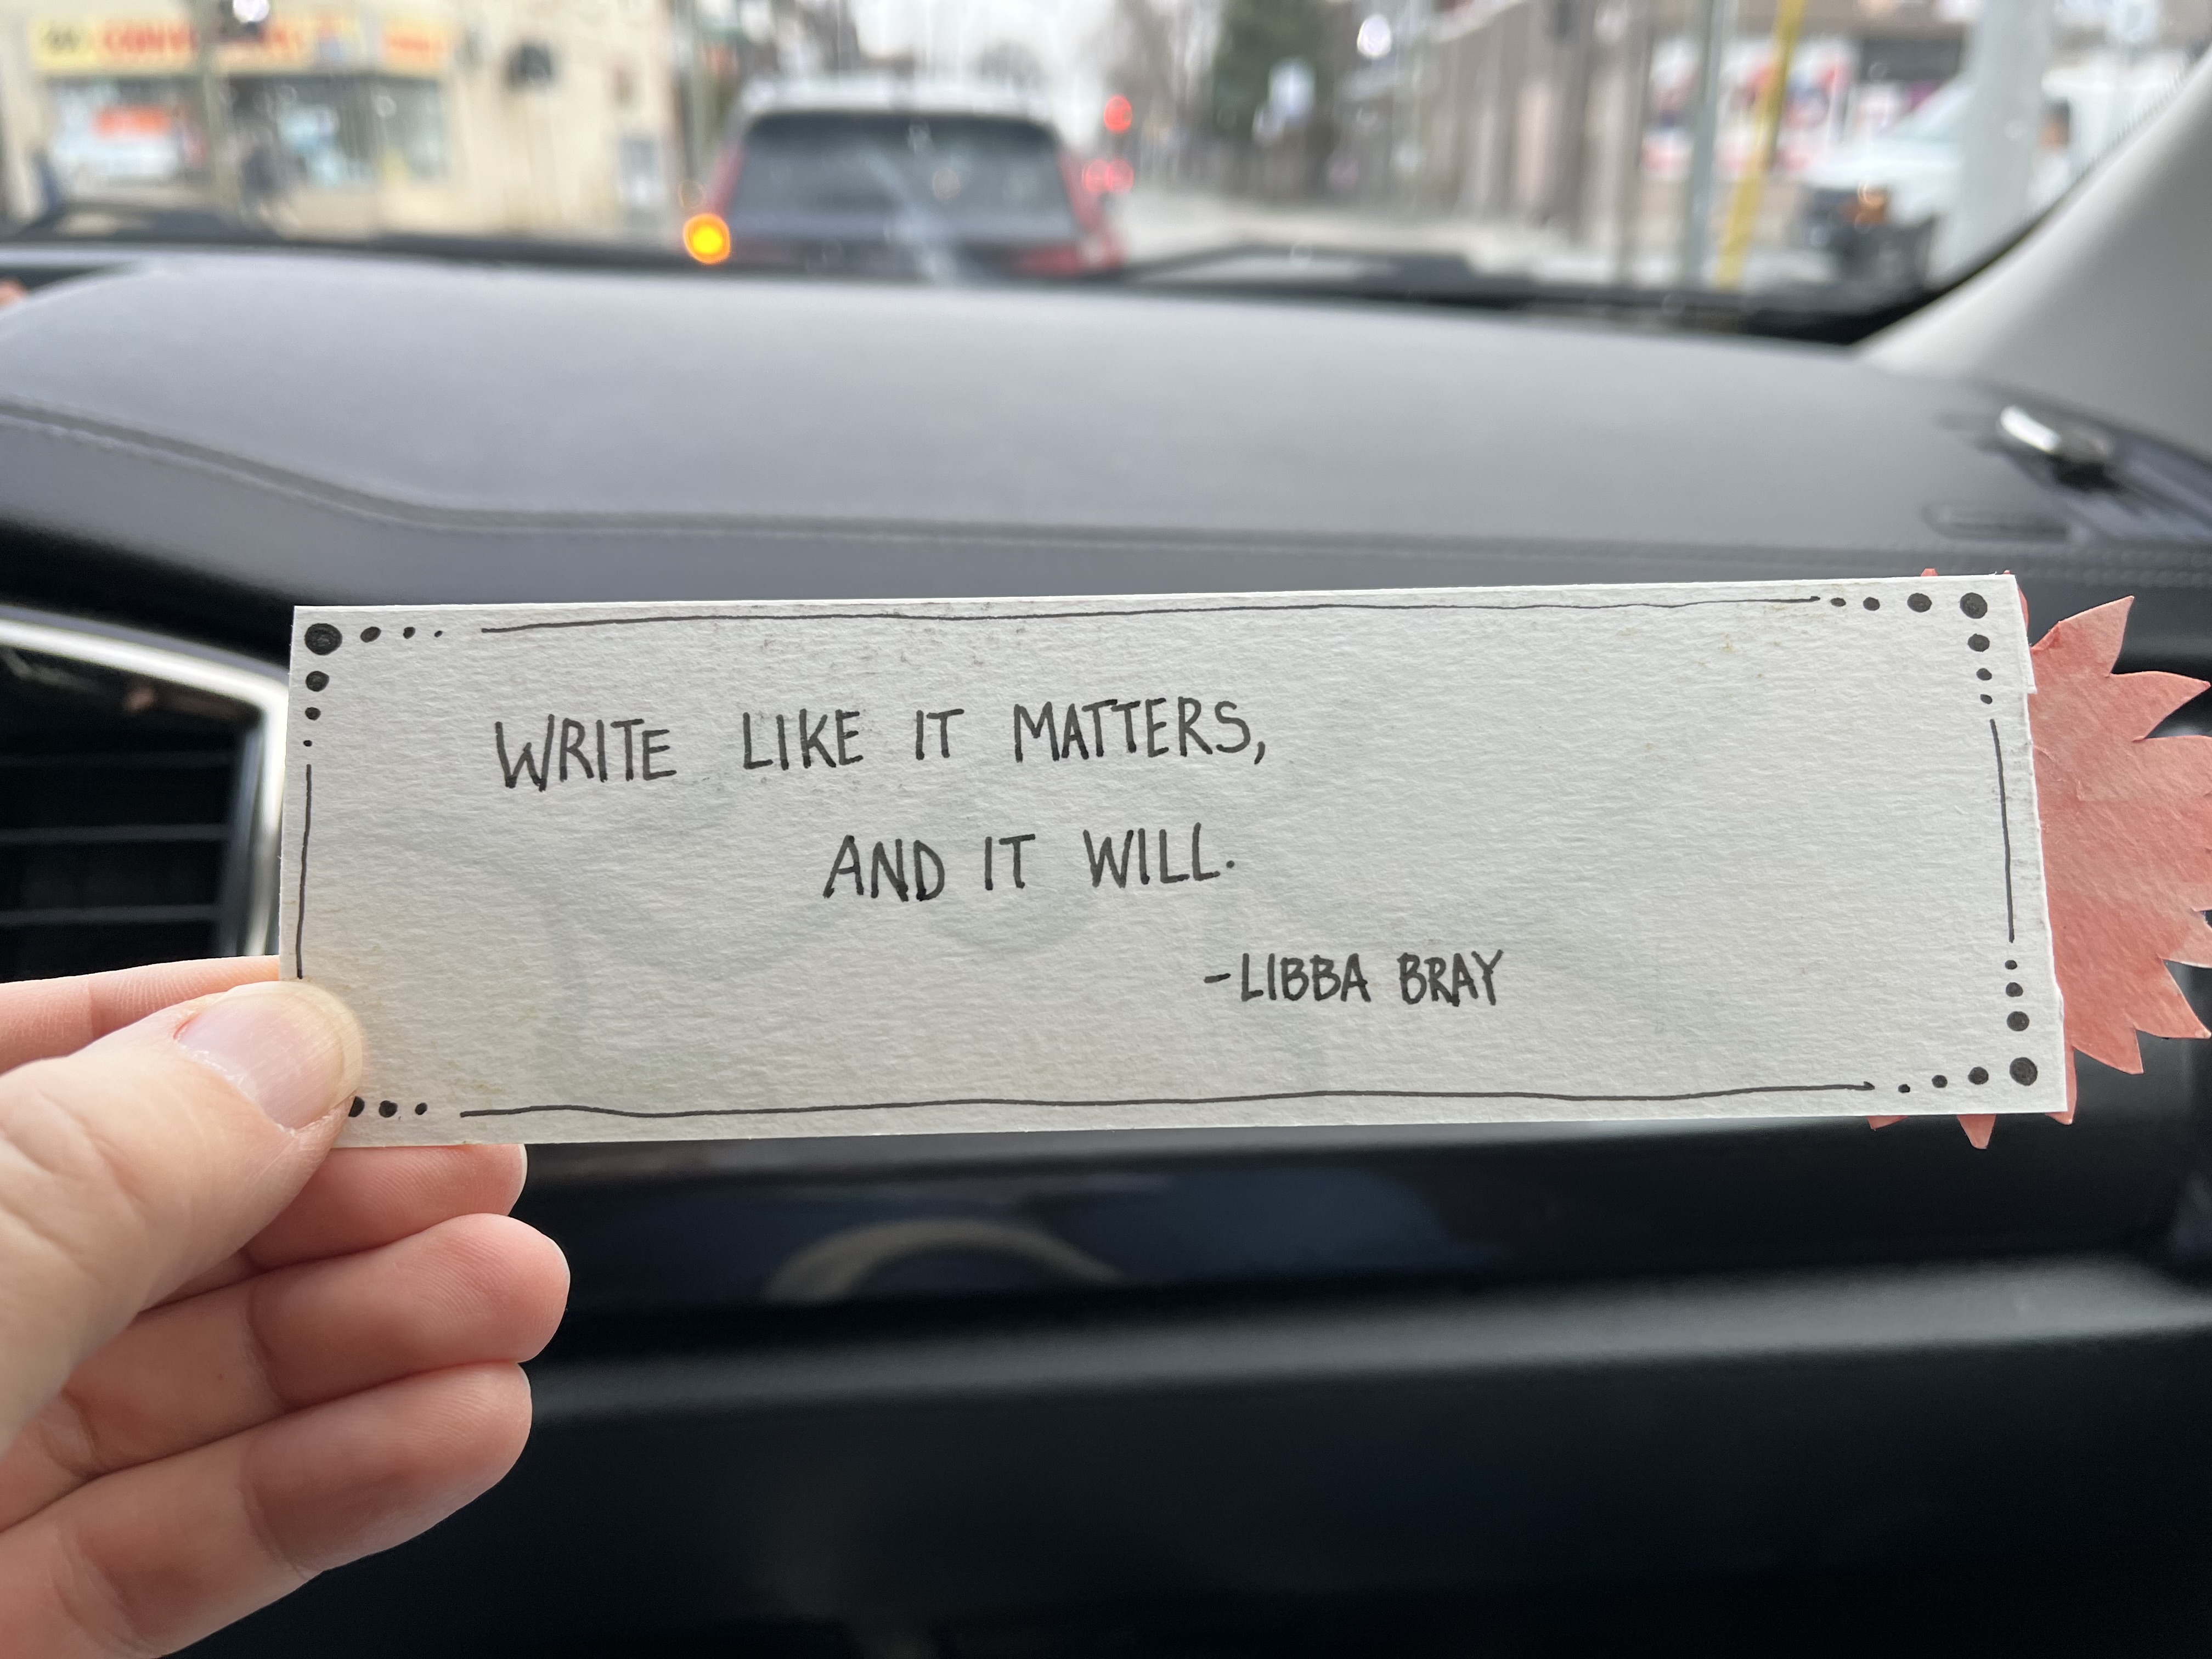 WRITE LIKE IT MATTERS,
AND IT WILL.
-LIBBA BRAY